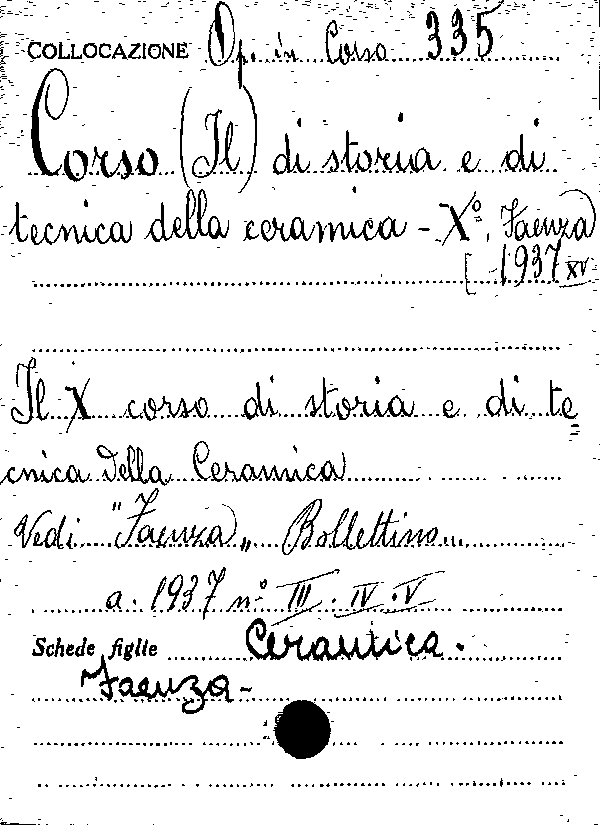 COLLOCAZIONE Op. in Corso 335
Corso (Il) di storia e di
tecnica della ceramica - X°. Faenza
[1937 XV
Il X corso di storia e di te
cnica della Ceramica
Vedi "Faenza„ Bollettino
a. 1937 n° III. IV. V
Schede figlie Ceramica.
Faenza-